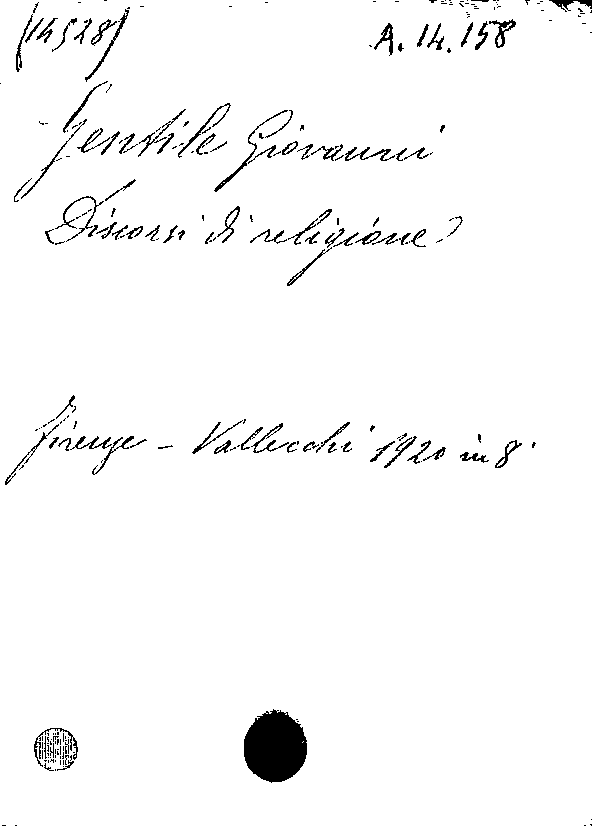 (14528)
A. 14. 158
Gentile Giovanni
Discorsi di religione
Firenze - Vallecchi 1920 in 8°